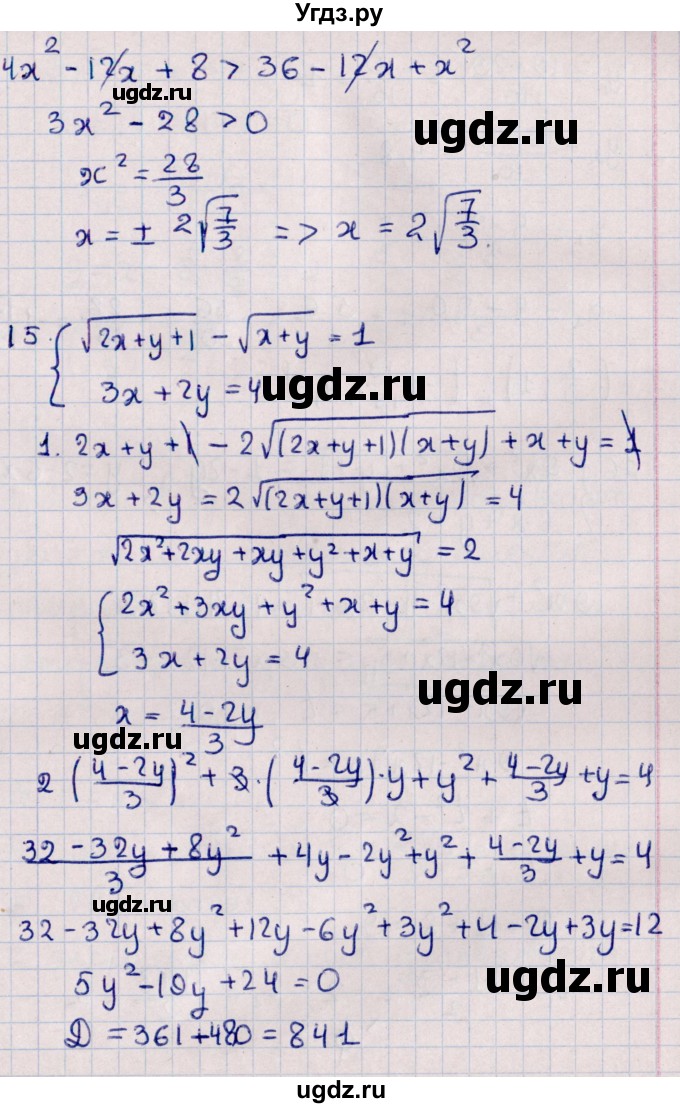 Угдз.ру
4x² - 12x + 8 > 36 - 12x + x²
ugdz.ru
ugdz.ru
3x² - 28 > 0
x² = 28/3
x = ± 2√(7/3) => x = 2√(7/3).
15. { √(2x+y+1) - √(x+y) = 1
3x + 2y = 4
ugdz.ru
1. 2x + y + 1 - 2√((2x+y+1)(x+y)) + x + y = 1
3x + 2y = 2√((2x+y+1)(x+y)) = 4
√(2x²+2xy+xy+y²+x+y) = 2
{ 2x² + 3xy + y² + x + y = 4
3x + 2y = 4
ugdz.ru
x = (4-2y)/3
ugdz.ru
2((4-2y)/3)² + 3·((4-2y)/3)·y + y² + (4-2y)/3 + y = 4
(32 - 32y + 8y²)/3 + 4y - 2y² + y² + (4-2y)/3 + y = 4
ugdz.ru
32 - 32y + 8y² + 12y - 6y² + 3y² + 4 - 2y + 3y = 12
5y² - 19y + 24 = 0
ugdz.ru
D = 361 + 480 = 841
ugdz.ru